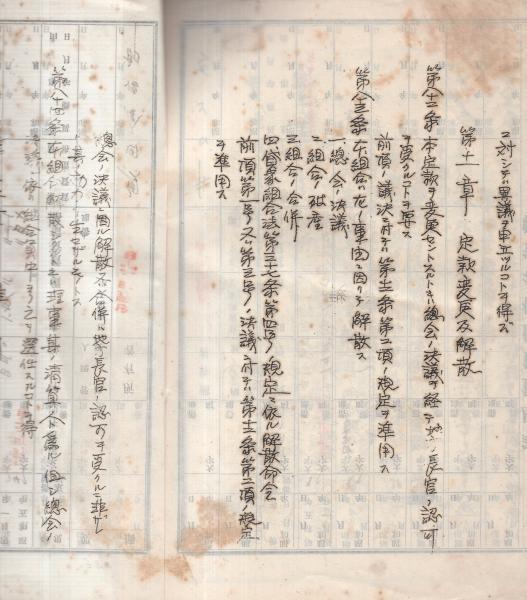 ニ対シテ異議ヲ申立ツルコトヲ得ズ
第十一章 定款変更及解散
第八十二条 本定款ヲ変更セントスルトキハ総会ノ決議ヲ経テ地方長官ノ認可
ヲ受クルコトヲ要ス
前項ノ議決ニ対テハ第十二条第二項ノ規定ヲ準用ス
第八十三条 本組合ハ左ノ事由ニ因リテ解散ス
一 総会ノ決議
二 組合ノ破産
三 組合ノ合併
四 貸家組合法第三十七条第四号ノ規定ニ依ル解散命令
前項第一号又ハ第三号ノ決議ニ対テハ第十二条第二項ノ規定
ヲ準用ス
総会ノ決議ニ因ル解散及合併ハ地方長官ノ認可ヲ受クルニ非ザレ
バ其ノ効力ヲ生ゼザルモノトス
第八十四条 本組合解散シタルトキハ理事其ノ清算人ト為ル但シ総会ノ
組合員中ヨリ之ヲ選任スルコトヲ得